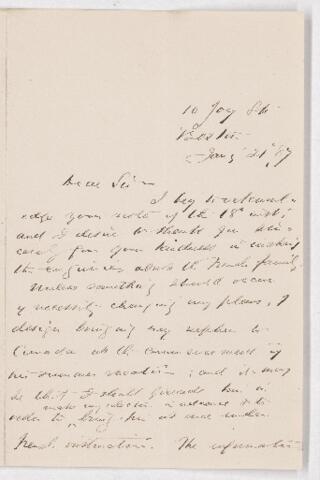 10 Joy St.
Boston
Jany 21 '87
Dear Sir
I beg to acknowl-
edge your note of the 18th inst;
and I desire to thank you sin-
cerely for your kindness in making
the enquiries about the French family.
Unless something should occur
necessarily changing my plans, I
design bringing my nephew to
Canada at the commencement of
his summer vacation; and it may
be that I should
make my selection in advance
order to bring him at once under
French instruction. The information